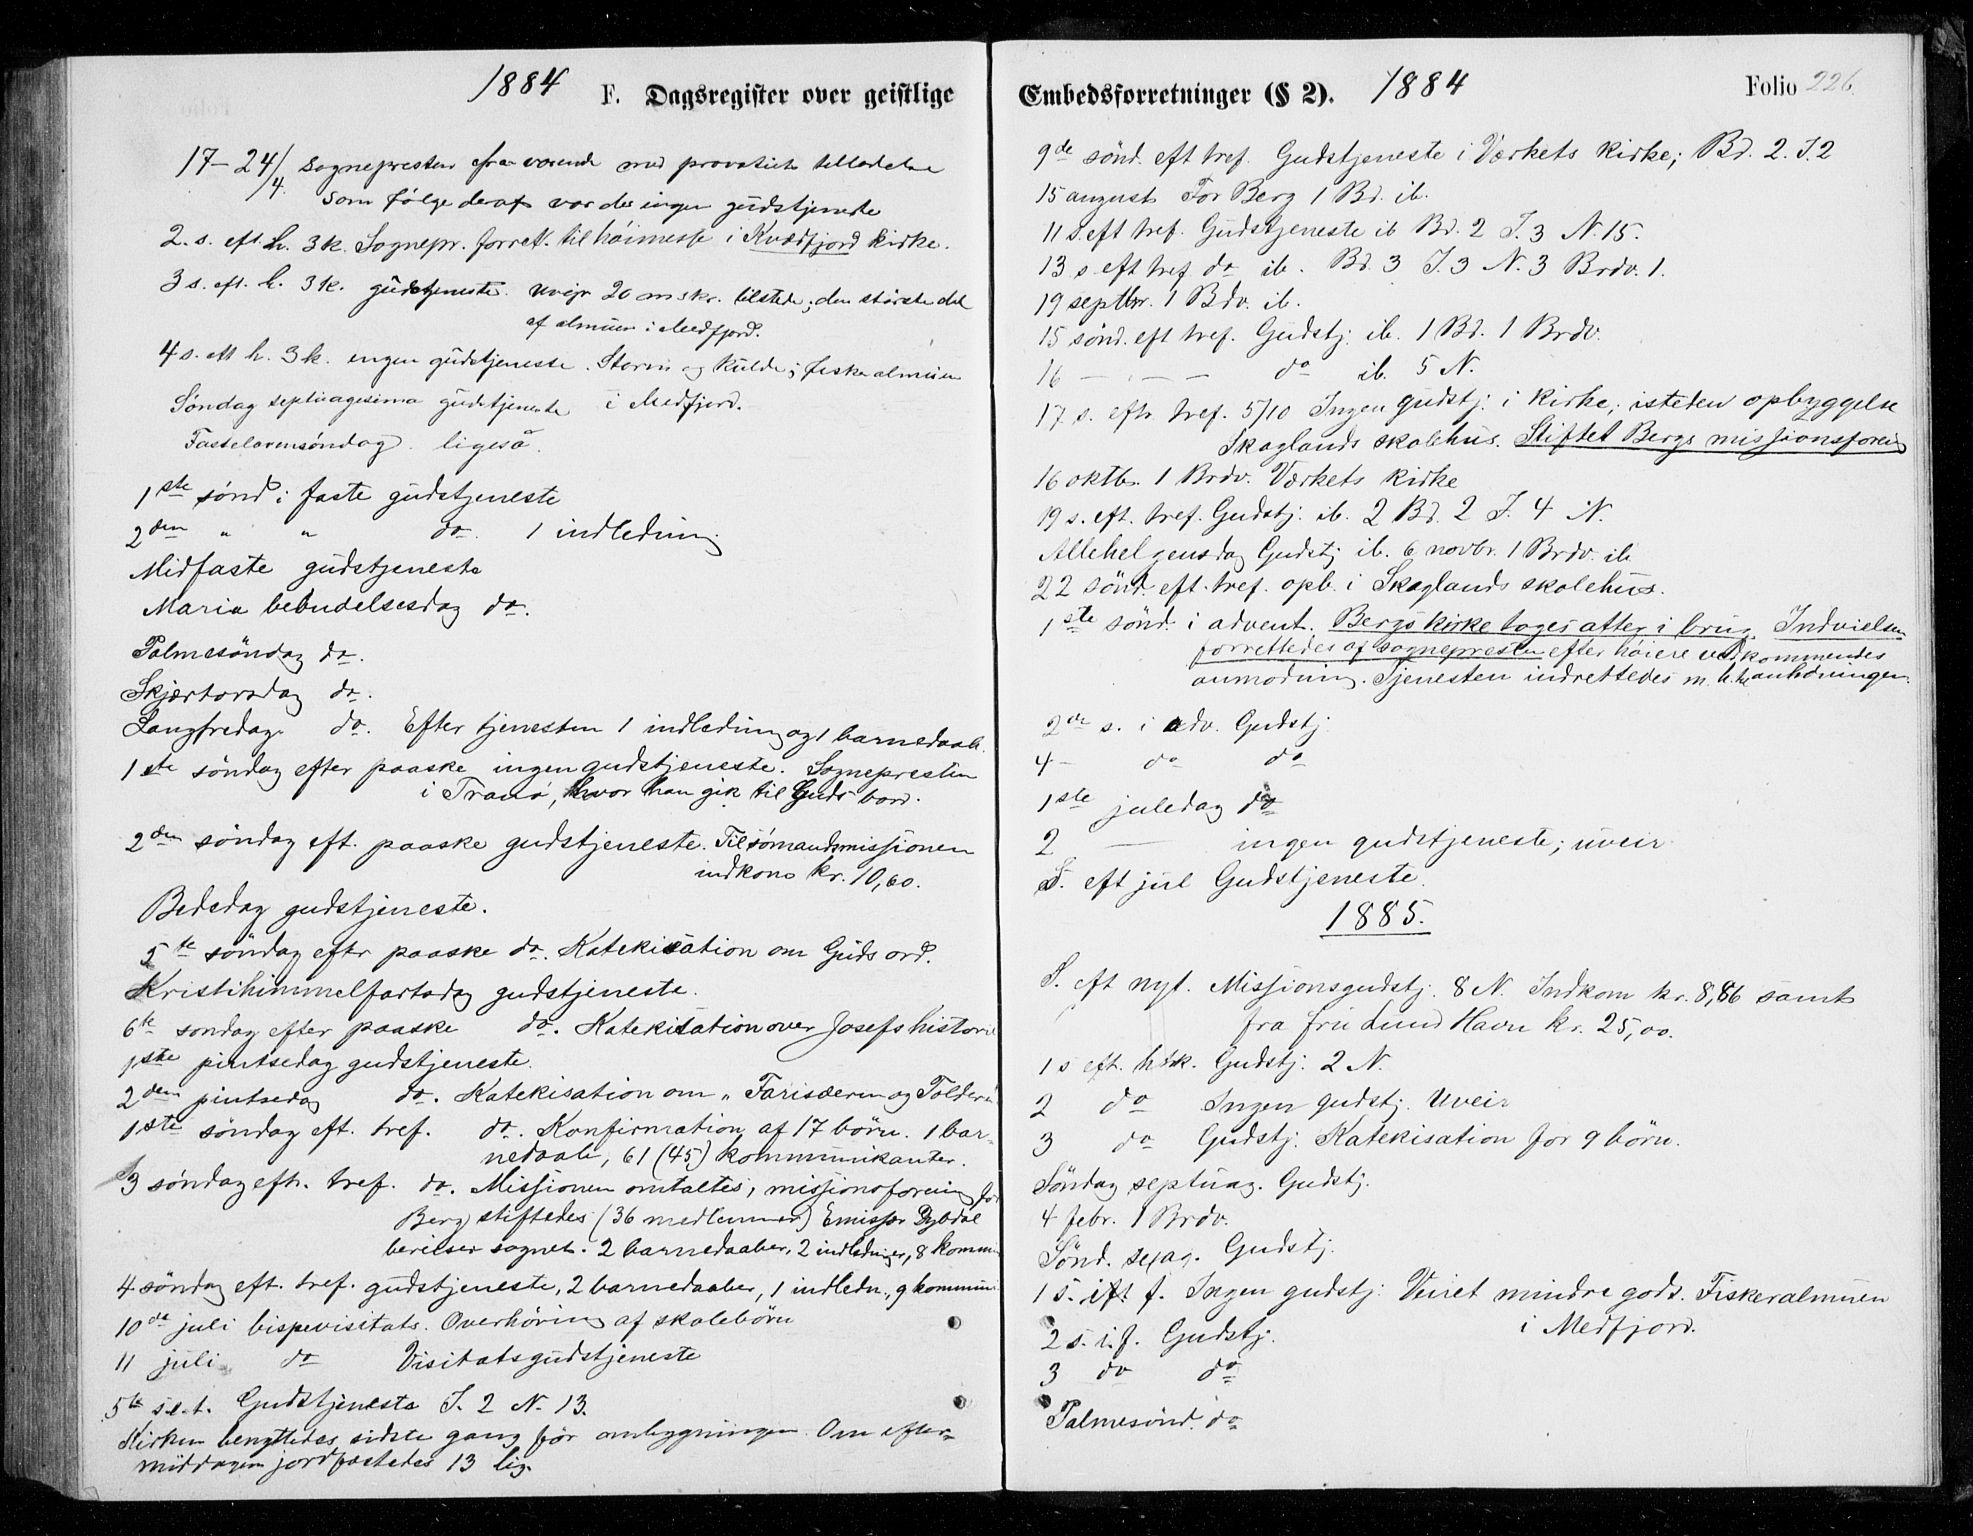 1884 F. Dagsregister over geistlige
17-24/4. Sognepresten fraværende med provstiets tilladelse
Som følge deraf var der ingen gudstjeneste
2. s. eft. h. 3 k. Sognepr. forret. til høimesse i Kvædfjord kirke.
3 s. eft. h. 3 k. gudstjeneste. uveir 20 mskr. tilstede; den største del
af almuen i Medfjord.
4 s. eft h. 3 k. ingen gudstjeneste. Storm og kulde; fiskealmuen
Søndag septuagesima gudstjeneste i Medfjord.
Fastelavenssøndag. ligeså.
1ste sønd i faste gudstjeneste
2den " " do. 1 indledning
Midfaste gudstjeneste
Maria bebudelsesdag do.
Palmesøndag do.
Skjærtorsdag do.
Langfredag do. Efter tjenesten 1 indledning og 1 barnedaab.
1ste søndag efter paaske ingen gudstjeneste. Sognepresten
i Tranø, hvor han gik til Guds bord.
2den søndag eft. paaske gudstjeneste. Til sømandsmissionen
indkom kr. 10,60.
Bedsdag gudstjeneste.
5te søndag eftr paaske do. Katekisation om Guds ord.
Kristihimmelfartsdag gudstjeneste.
6te søndag efter paaske do. Katekisation over Josefs historie
1ste pintsedag gudstjeneste.
2den pintsedag do. Katekisation om „Farisæeren og Tolderen
1ste søndag eft. tref. do. Konfirmation af 17 børn. 1 bar-
nedaab, 61 (45) kommunikanter.
3 søndag eftr. tref. do. Missionen omtaltes, missionsforening for
Berg stiftedes (36 medlemmer) Emissær Dybdal
bereiser sognet. 2 barnedaaber, 2 indledninger, 8 kommun
4 søndag eft. tref. gudstjeneste, 2 barnedaaber, 1 indledn., 9 kommuni
10de juli bispevisitats. Overhøring af skolebørn
11 juli do Visitatsgudstjeneste
5te s. e. t. Gudstjeneste I. 2 N. 13.
Kirken benyttedes sidste gang før ombygningen. Om efter-
middagen jordfæstedes 13 lig.
Embedsforretninger (§ 2). 1884 Folio 226.
9de sønd. eft tref. Gudstjeneste i Værkets kirke; Bd. 2. I. 2
15 august For Berg 1 Bd. ib.
11 s. eft tref. Gudstjeneste ib Bd. 2 I. 3 N. 15.
13 s. eft tref. do ib. Bd. 3 I. 3 N. 3 Brdv. 1.
19 septbr. 1 Bdv. ib.
15 sønd. eft tref. Gudstj. ib. 1 Bd. 1 Brdv.
16 — — — do ib. 5 N.
17 s. eftr tref. 5/10 Ingen gudstj. i kirke; isteden opbyggelse
Skaglands skolehus. Stiftet Bergs missionsforeing
16 oktbr. 1 Brdv. Værkets kirke
19 s. eft. tref. Gudstj. ib. 2 Bd. 2 I. 4 N.
Allehelgensdag Gudstj ib. 6 novbr. 1 Brdv. ib
22 sønd. eft. tref. opb. i Skaglands skolehus.
1ste sønd. i advent. Bergs kirke toges atter i brug. Indvielsen
forrettedes af sognepresten efter høiere vedkommendes
anmodning. Tjenesten indrettedes m. h. t. anledningen.
2de s. i adv. Gudstj.
4 - do do
1ste juledag do
2 — ingen gudstjeneste; uveir
S. eft jul Gudstjeneste.
1885.
S. eft nyt. Missionsgudstj. 8 N. Indkom kr. 8,86 samt
fra fru Lund Havn kr. 25,00.
1 s eft. h 3k. Gudstj. 2 N.
2 do Ingen gudstj. Uveir
3 do Gudstj. Katekisation for 9 børn.
Søndag septuag. Gudstj.
4 febr. 1 Brdv.
Sønd. sexag. Gudstj.
1 s. i f. Ingen gudstj. Veiret mindre godt. Fiskeralmuen
i Medfjord.
2 s. i. f. Gudstj.
3 do do
Palmesønd. do